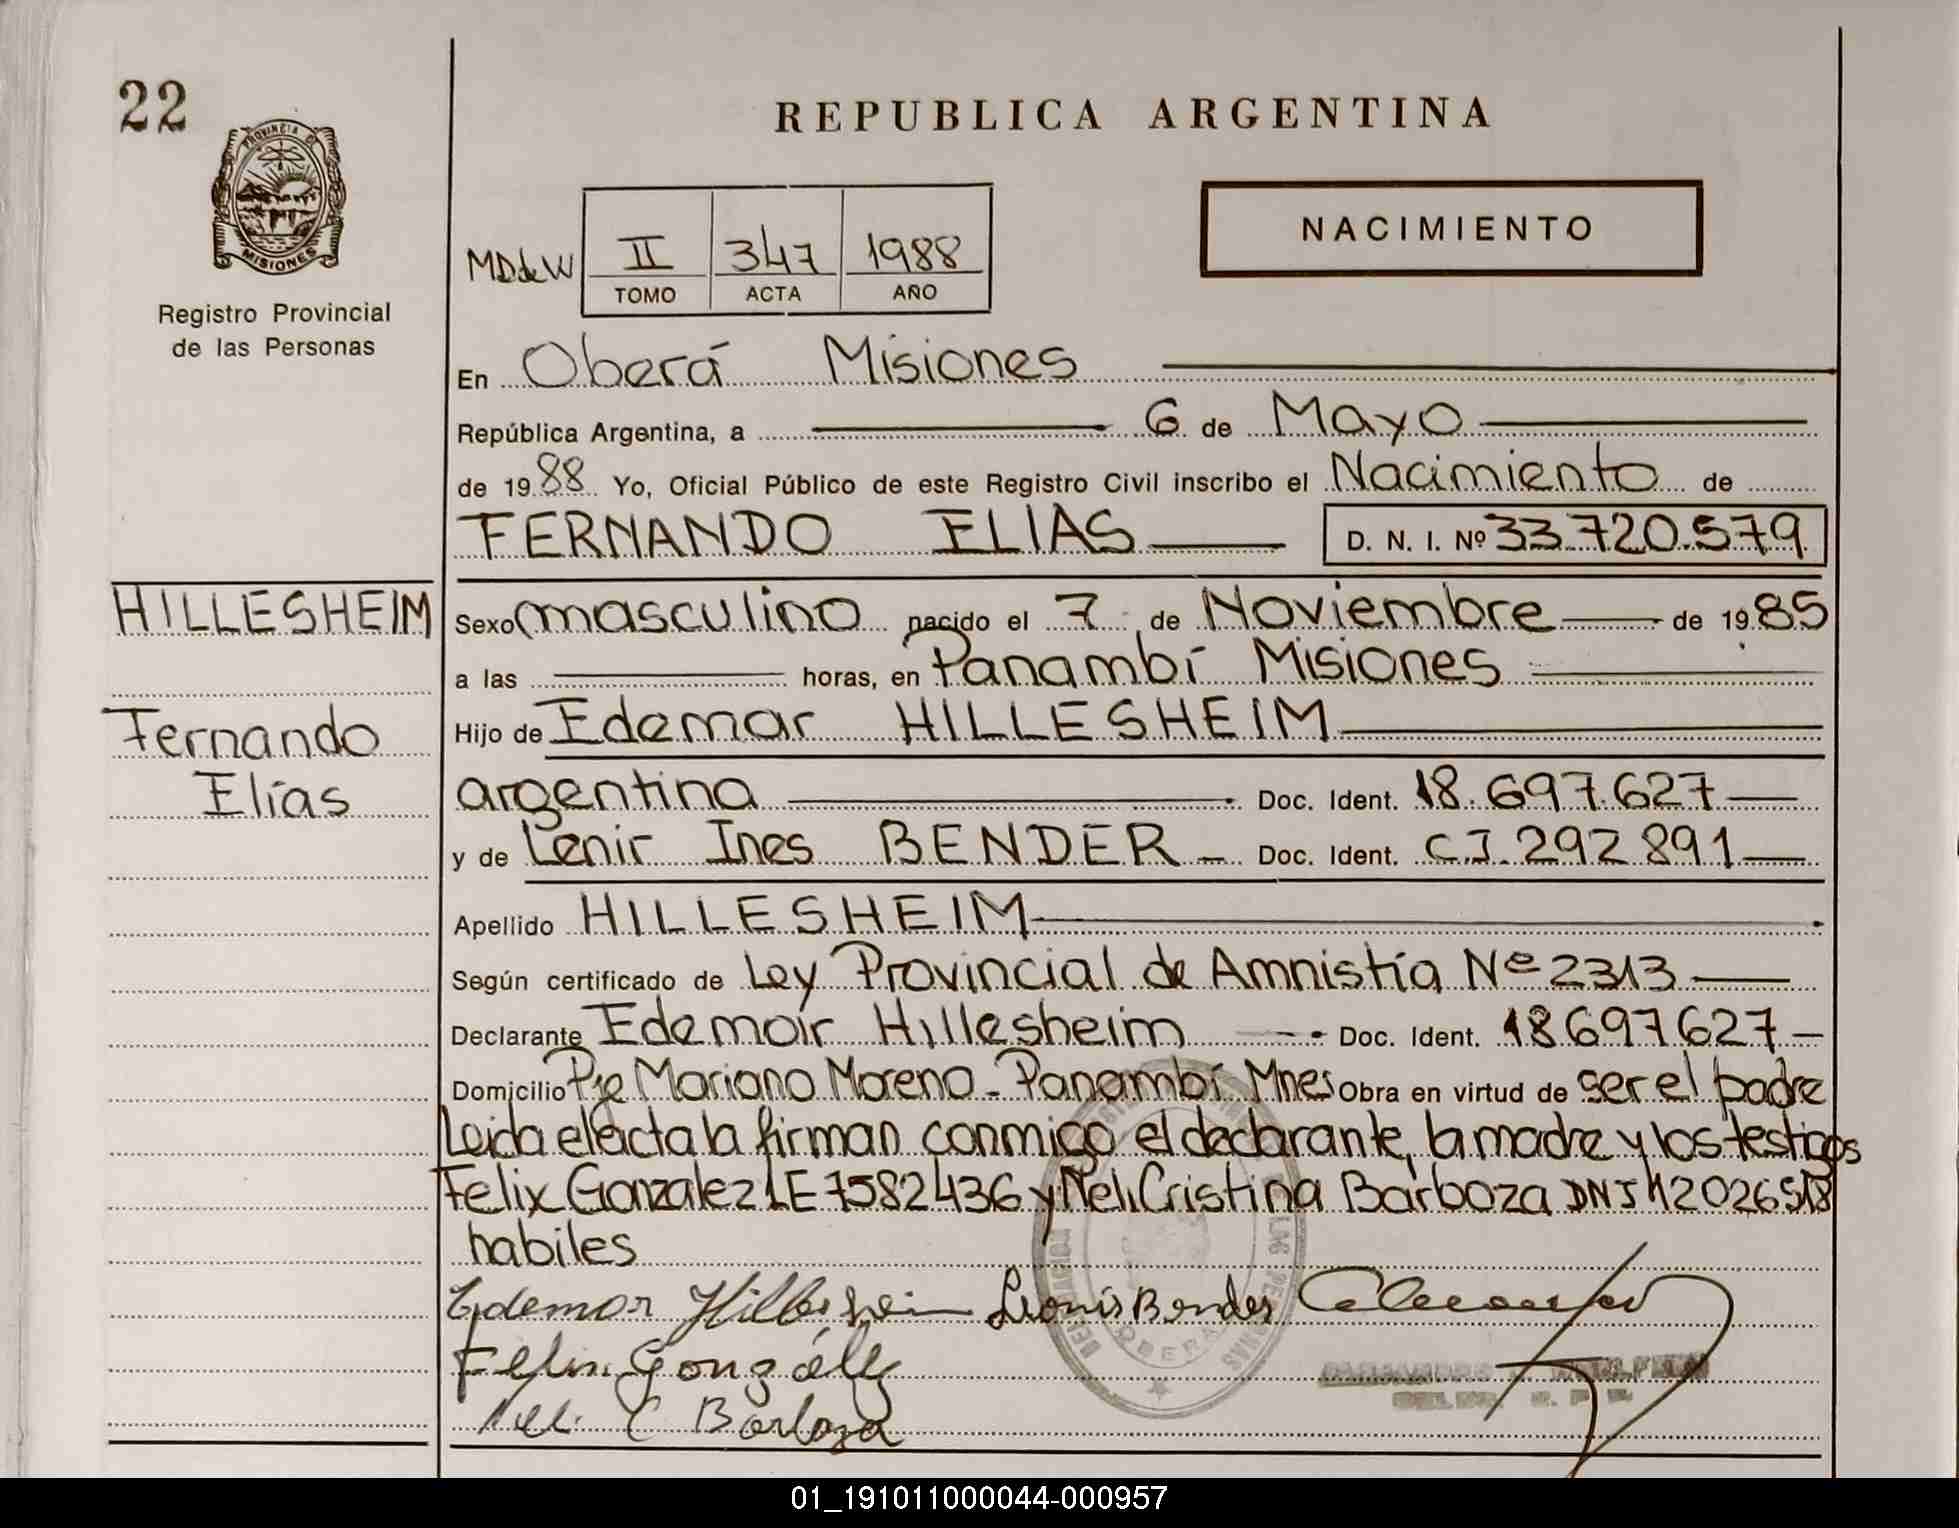 22
REPUBLICA ARGENTINA
PROVINCIA DE
MISIONES
NACIMIENTO
MDdeW II 347 1988
TOMO ACTA AÑO
Registro Provincial
de las Personas
En Oberá Misiones
República Argentina, a 6 de Mayo
de 1988 Yo, Oficial Público de este Registro Civil inscribo el Nacimiento de
FERNANDO ELIAS D. N. I. Nº 33.720.579
HILLESHEIM
Sexo masculino nacido el 7 de Noviembre de 1985
a las horas, en Panambí Misiones
Fernando
Elías
Hijo de Edemar HILLESHEIM
argentina Doc. Ident. 18.697.627
y de Lenir Ines BENDER Doc. Ident. C.I. 292891
Apellido HILLESHEIM
Según certificado de Ley Provincial de Amnistía Nº 2313
Declarante Edemar Hillesheim Doc. Ident. 18697627
Domicilio Pje Mariano Moreno - Panambí Mnes Obra en virtud de ser el padre
Leida el acta la firman conmigo el declarante, la madre y los testigos
Felix Gonzalez LE 7582436 y Neli Cristina Barboza DNI 12026518
habiles
Edemar Hillesheim Bender
Felix González
Neli C Barboza
OBERA
01_191011000044-000957